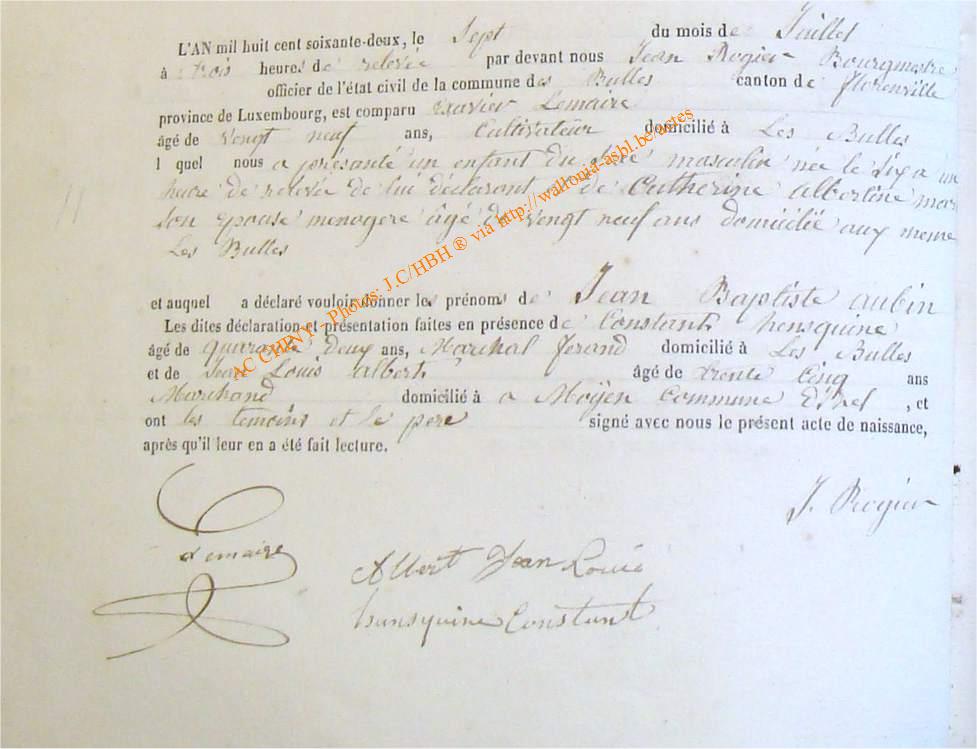 L'AN mil huit cent soixante-deux, le Sept du mois de Juillet
à trois heures de relevée par devant nous Jean Rogier Bourgmestre
officier de l'état civil de la commune des Bulles canton de florenville
province de Luxembourg, est comparu Exavier Lemaire
âgé de vengt neuf ans, Cultivateur domicilié à Les Bulles
l quel nous a présenté un enfant du masculin née le Six a un
heure de relevée de lui déclarant et de Catherine Albertine
son epouse menagere âgé de vengt neuf ans domiciliée aux meme
Les Bulles
et auquel a déclaré vouloir donner les prénoms de Jean Baptiste aubin
Les dites déclaration et présentation faites en présence de Constant hensquine
âgé de quarante deux ans, Marichal ferand domicilié à Les Bulles
et de Jean Louis albert âgé de trente Cinq ans
Marchand domicilié à a Moÿen Commune , et
ont les temoins et le pere signé avec nous le présent acte de naissance,
après qu'il leur en a été fait lecture.
J. Rogier
Lemaire
Albert Jean Louis
hansquine Constant
AC CHINY - Photos: J.C/HBH ® via http://wallonia-asbl.be/actes